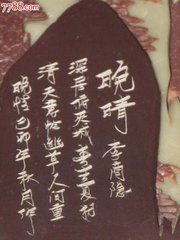 7788.com
晚晴
李商隐
深居俯夹城春去夏犹
清天意怜幽草人间重
晚晴己卯年秋月作